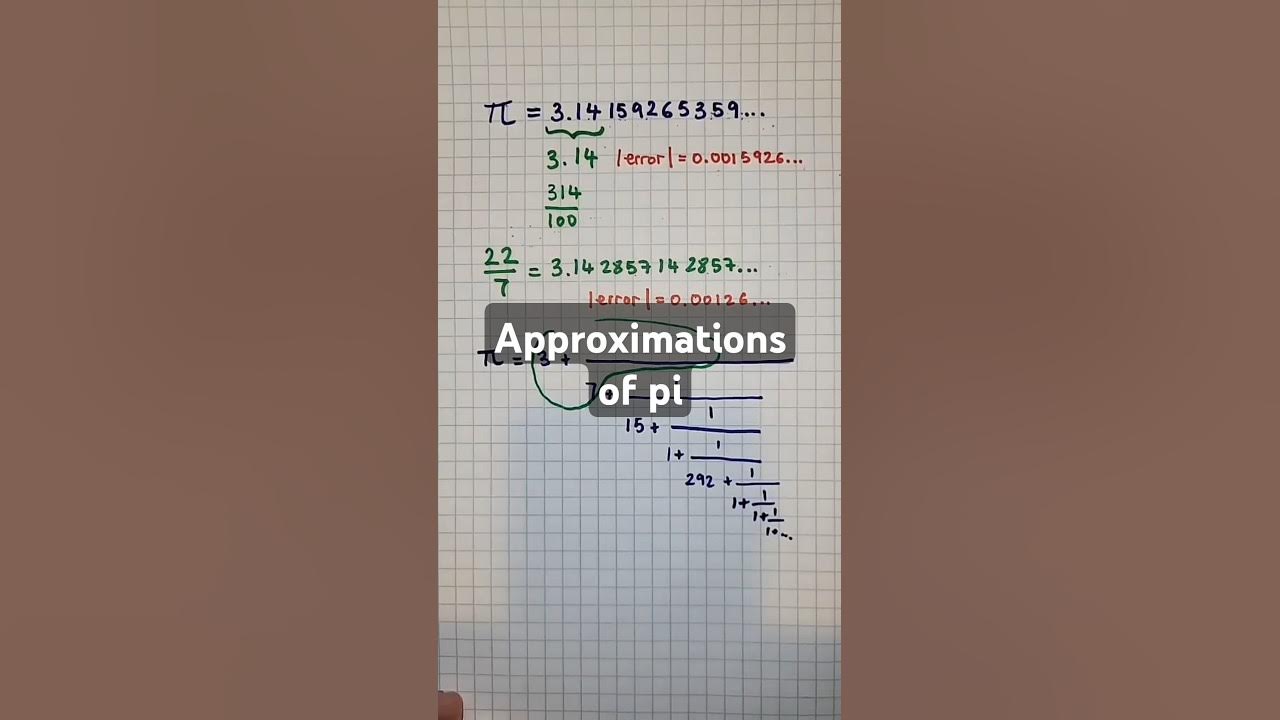 π = 3.14159265359...
3.14 |error| = 0.0015926...
314
100
22
7
= 3.142857142857...
|error| = 0.00126...
Approximations
of pi
π = 3 +
7+
1
15 +
1
1 +
1
292 +
1
1 +
1
1 +
1
1+...